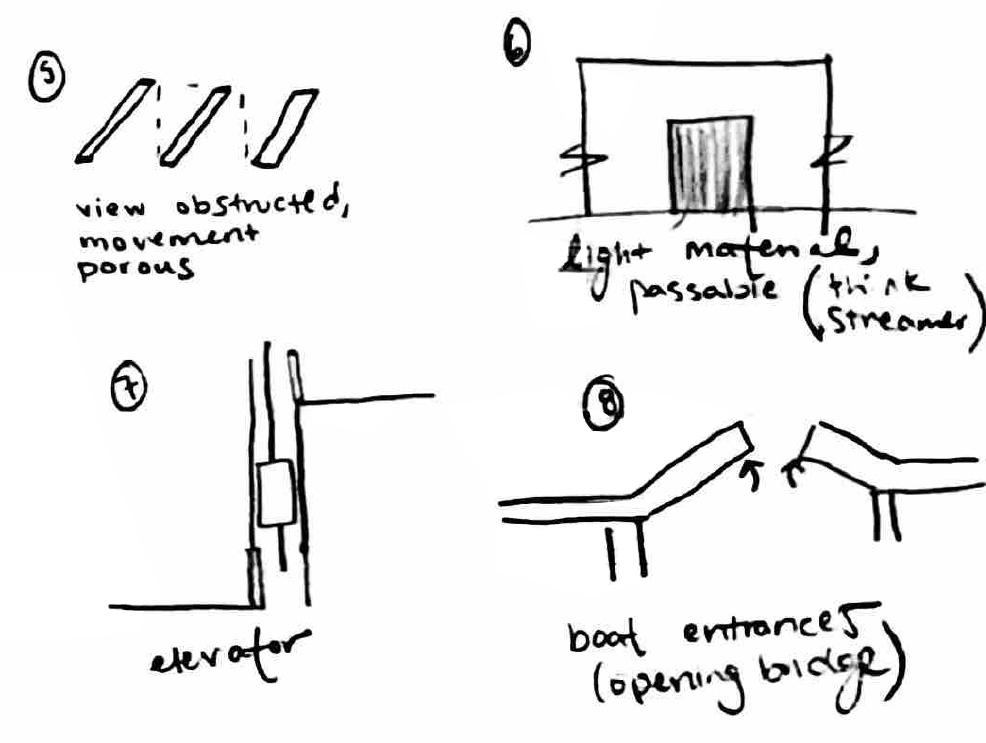 5
view obstructed,
movement
porous
6
light material,
passable (think
streamer)
7
elevator
8
boat entrances
(opening bridge)